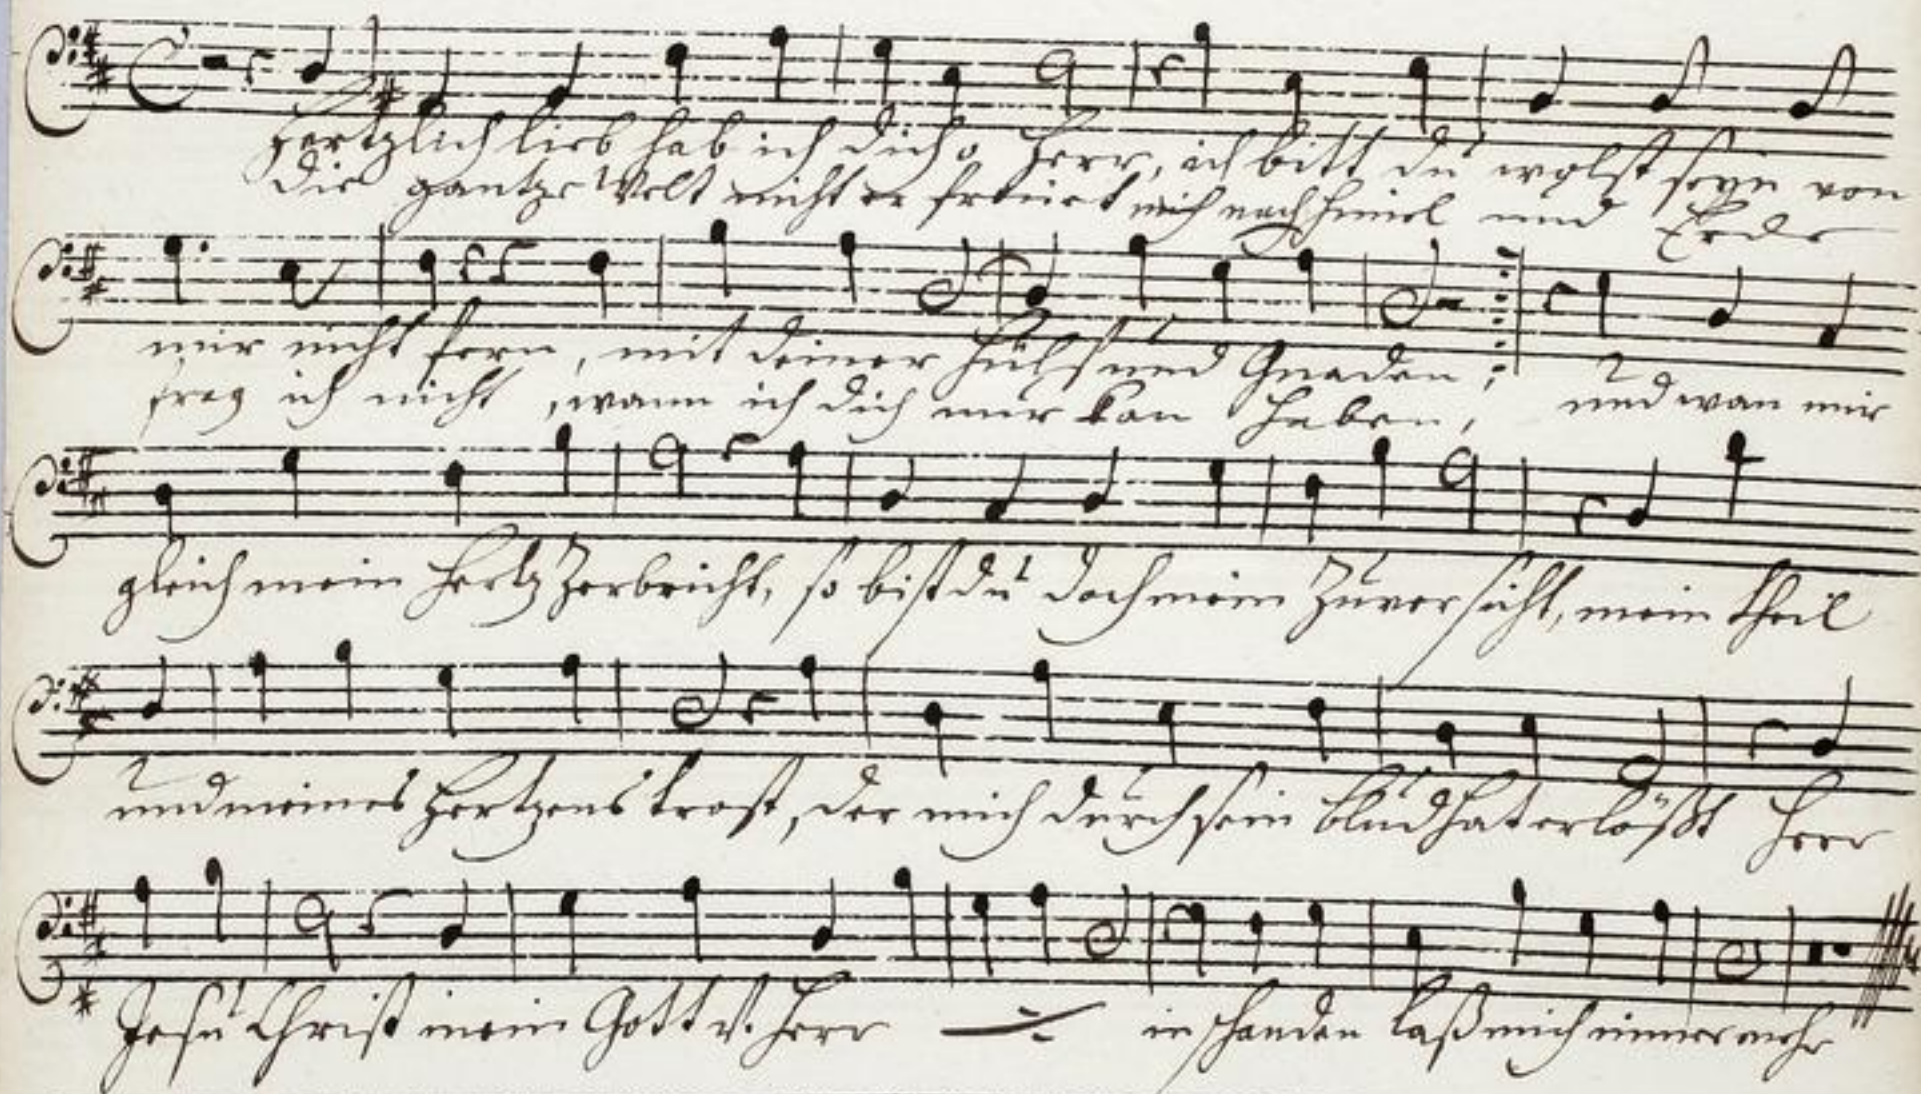 Hertzlich lieb hab ich dich o Herr, ich bitt du wolst seyn von
Die gantze Welt nicht erfreüet mich nach Himel und Erde
mir nicht fern, mit deiner Hülf und Gnaden,
frag ich nicht, wann ich dich nur kan haben, und wan mir
gleich mein Hertz zerbricht, so bist du doch mein Zuversicht, mein theil
und meines Hertzens trost, der mich durch sein blud hat erlößt Herr
Jesu Christ mein Gott u. Herr in schanden laß mich nimermehr